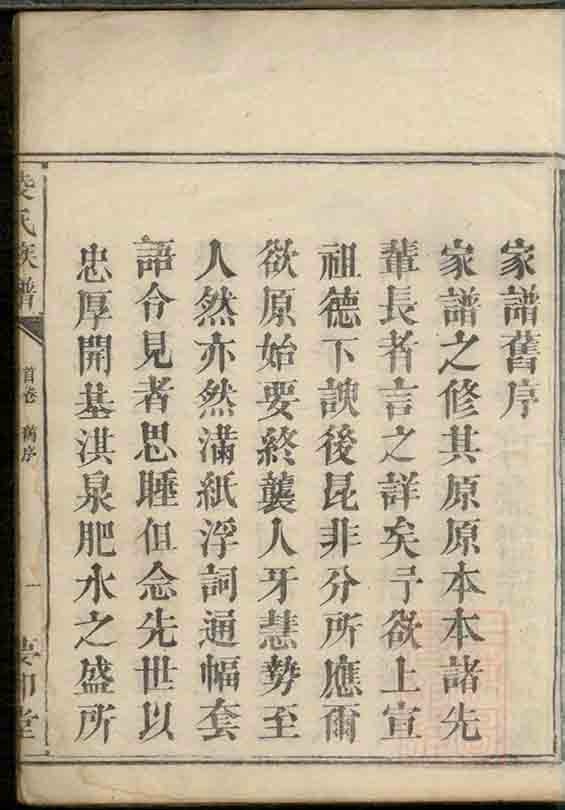 家譜舊序
家譜之修其原原本本諸先
輩長者言之詳矣予欲上宣
祖德下諛後昆非分所應爾
欲原始要終襲人牙慧勢至
人然亦然滿紙浮詞通幅套
語令見者思睡但念先世以
忠厚開基淇泉肥水之盛所
氏族譜
首卷 舊序
一
堂